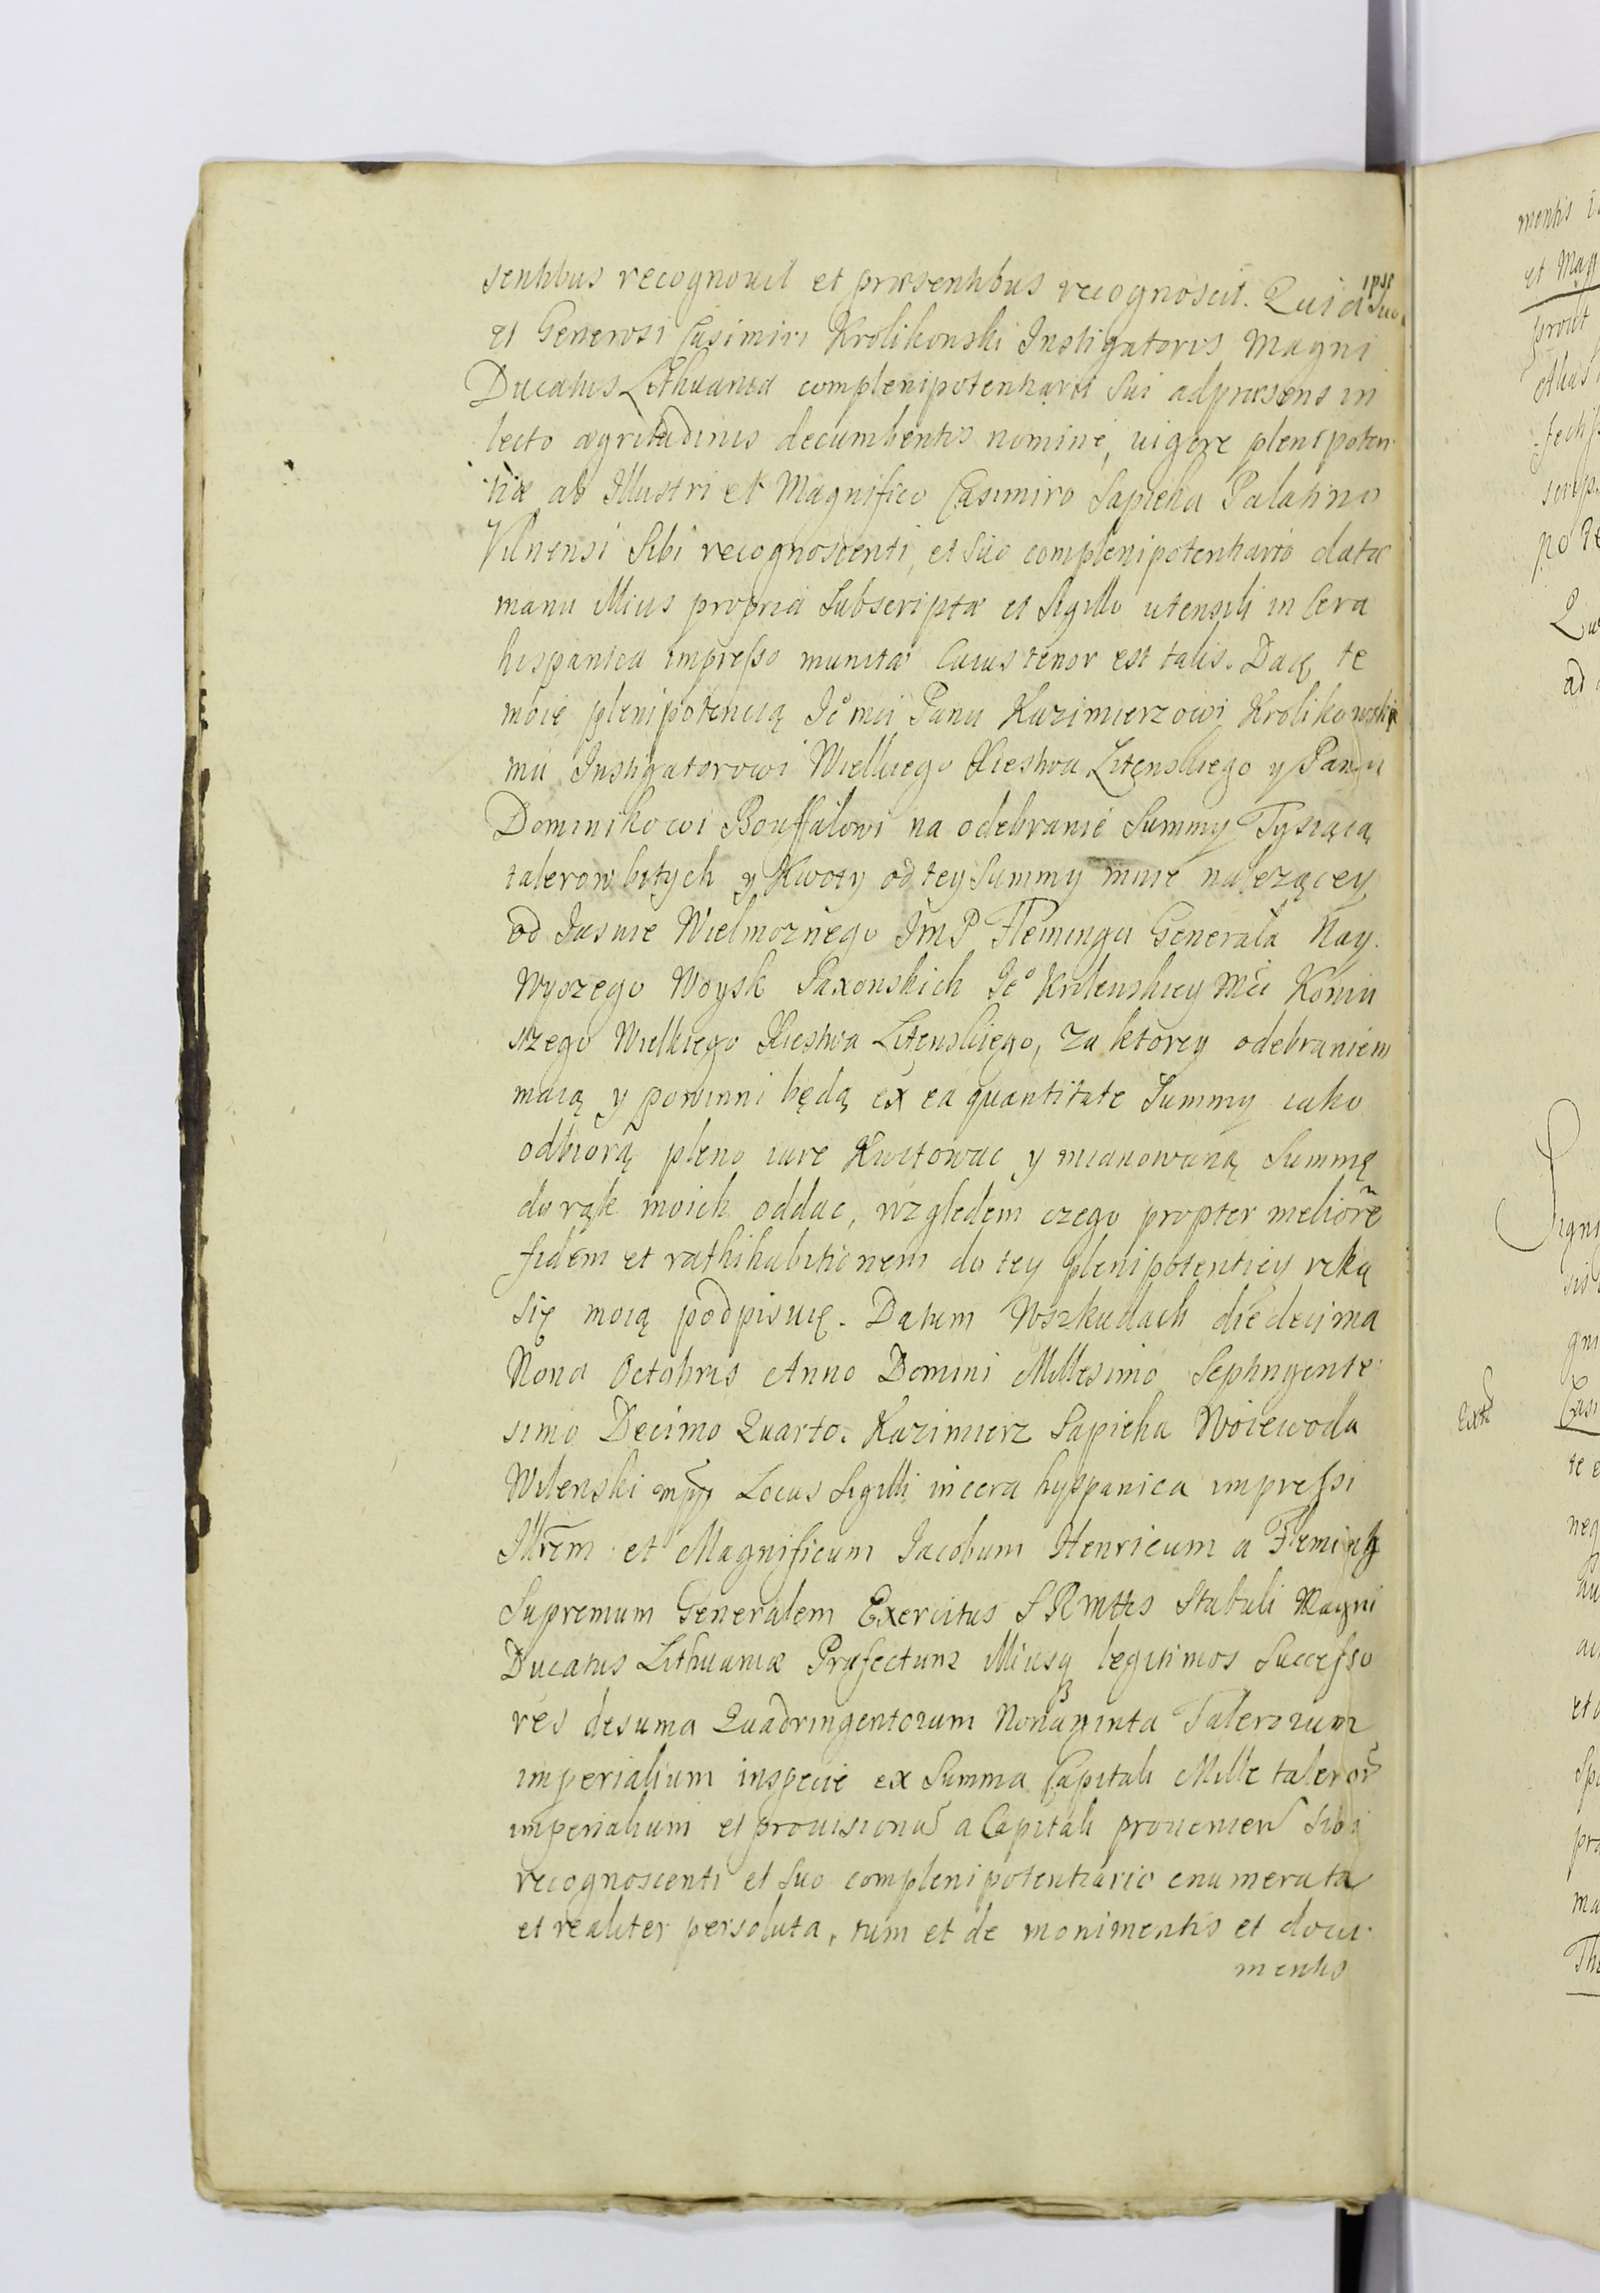 sentibus recognovit et præsentibus recognoscit. Quia ipse suo
et Generosi Casimiri Krolikonski Instigatoris Magni
Ducatus Lithuaniæ complenipotentiarii sui adpræsens in
lecto ægritudinis decumbentis nomine, uigore plenipoten
tiæ ab Illustri et Magnifico Casimiro Sapieha Palatino
Vilnensi Sibi recognoscenti, et suo complenipotentiario datæ
manu illius propria Subscriptæ et Sigillo utensili in Cera
hispanica impresso munitæ Cuius tenor est talis. Daię te
moię plenipotencią Jº mci Panu Kazimierzowi Krolikowskie
mu Instigatorowi Wielkiego Xiestwa Litęnskiego y Panu
Dominikowi Bouffałowi na odebranie Summy Tysiąca
talerow bitych y Kwoty od tey Summy mnie nalezącey
od Jasnie Wielmoznego JmP Fleminga Generała Nay.
wyszego Woysk Saxonskich Jº Krolenskiey Mci Koniu
szego Wielkiego Xiestwa Litenskiego, za ktorey odebraniem
maią y powinni będą ex ea quantitate Summy iako
odbiorą pleno iure Kwitowac y mianowaną Summę
do rąk moich oddac, względem czego propter meliorẽ
fidem et rathihabitionem do tey plenipotentiey ręką
się moią podpisuię. Datum Wszkudach die decima
Nona Octobris Anno Domini Millesimo Septingente
simo Decimo Quarto. Kazimierz Sapieha Woiewoda
Wilenski mpp Locus Sigilli in cera hyspanica impressi
Illrẽm et Magnificum Jacobum Henricum a Fleming
Supremum Generalem Exercitus S R Mttis Stabuli Magni
Ducatus Lithuaniæ Præfectum Illiusq legitimos Successo
res desuma Quadringentorum Nonaginta Talerorum
imperialium inspecie ex Summa Capitali Mille talerorũ
imperialium et prouisionũ a Capitali prouenien Sibi
recognoscenti et suo complenipotentiario enumerata
et realiter persoluta, tum et de monimentis et docu.
mentis